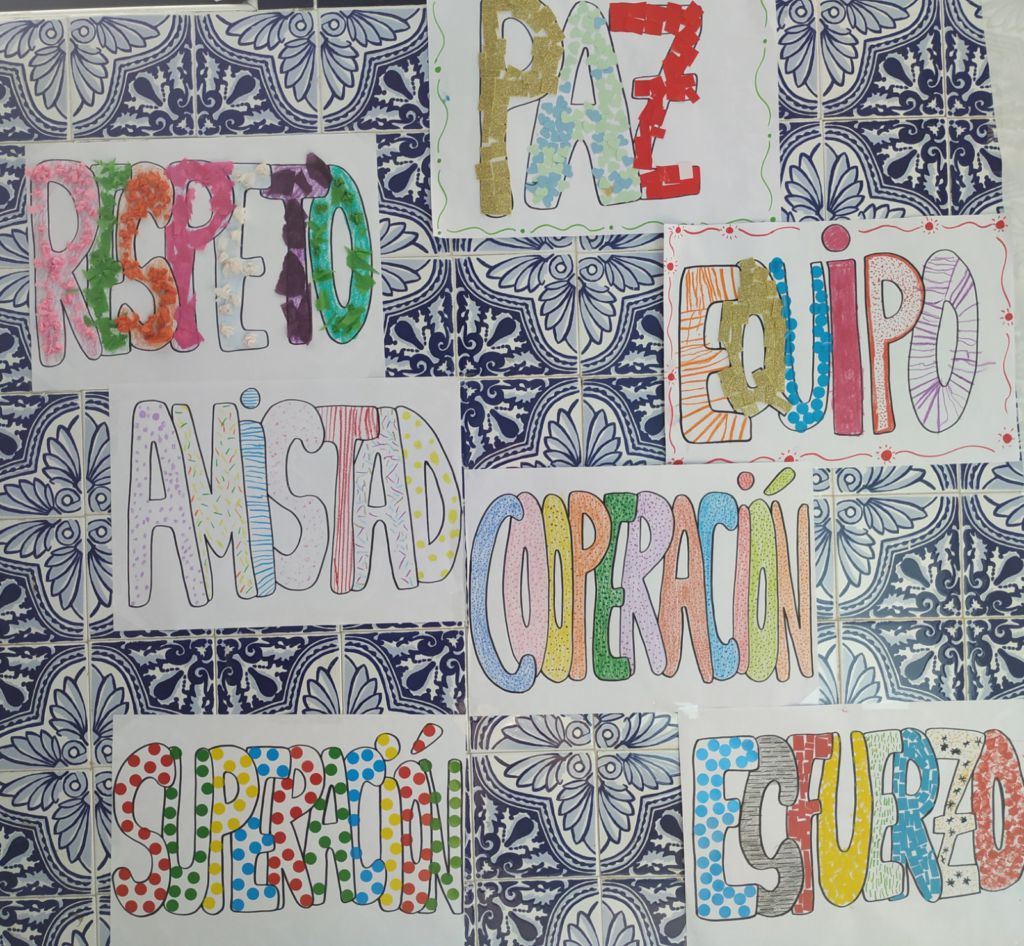 PAZ
RESPETO
EQUiPO
AMiSTAD
COOPERACIÓN
SUPERACIÓN
ESFUERZO